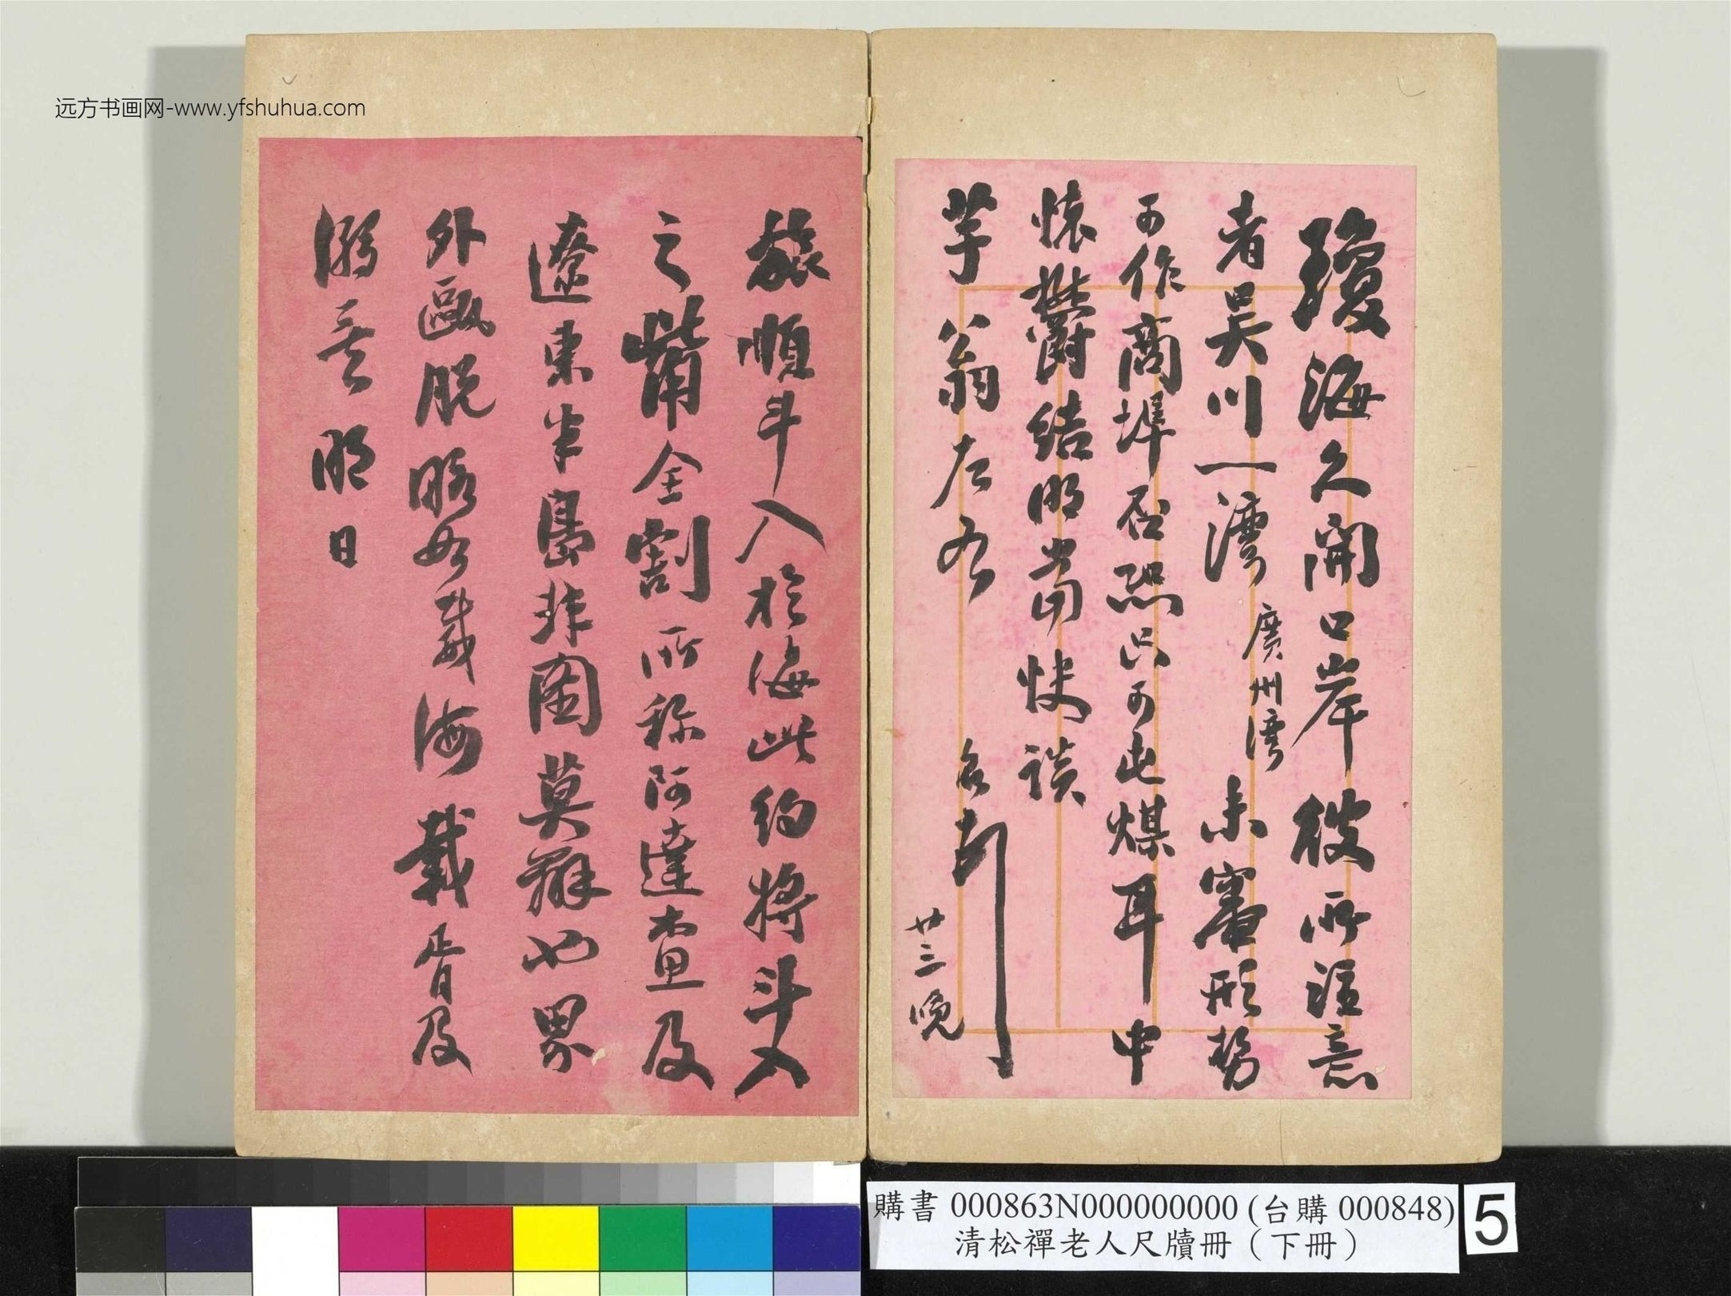 远方书画网-www.yfshuhua.com
瓊海久開口岸彼所注意
者吴川一灣廣州灣未審形勢
可作商埠否恐只可屯煤耳中
懷鬱結明當快談
芋翁左右 名刺
廿三晚
旅順斗入於海此約將斗入
之嘴全割所称阿達壺及
遼東半島非图莫辦也界
外甌脱略如載海載胥及
溺言明日
購書 000863N000000000 (台購 000848)
清松禪老人尺牘冊（下冊）
5